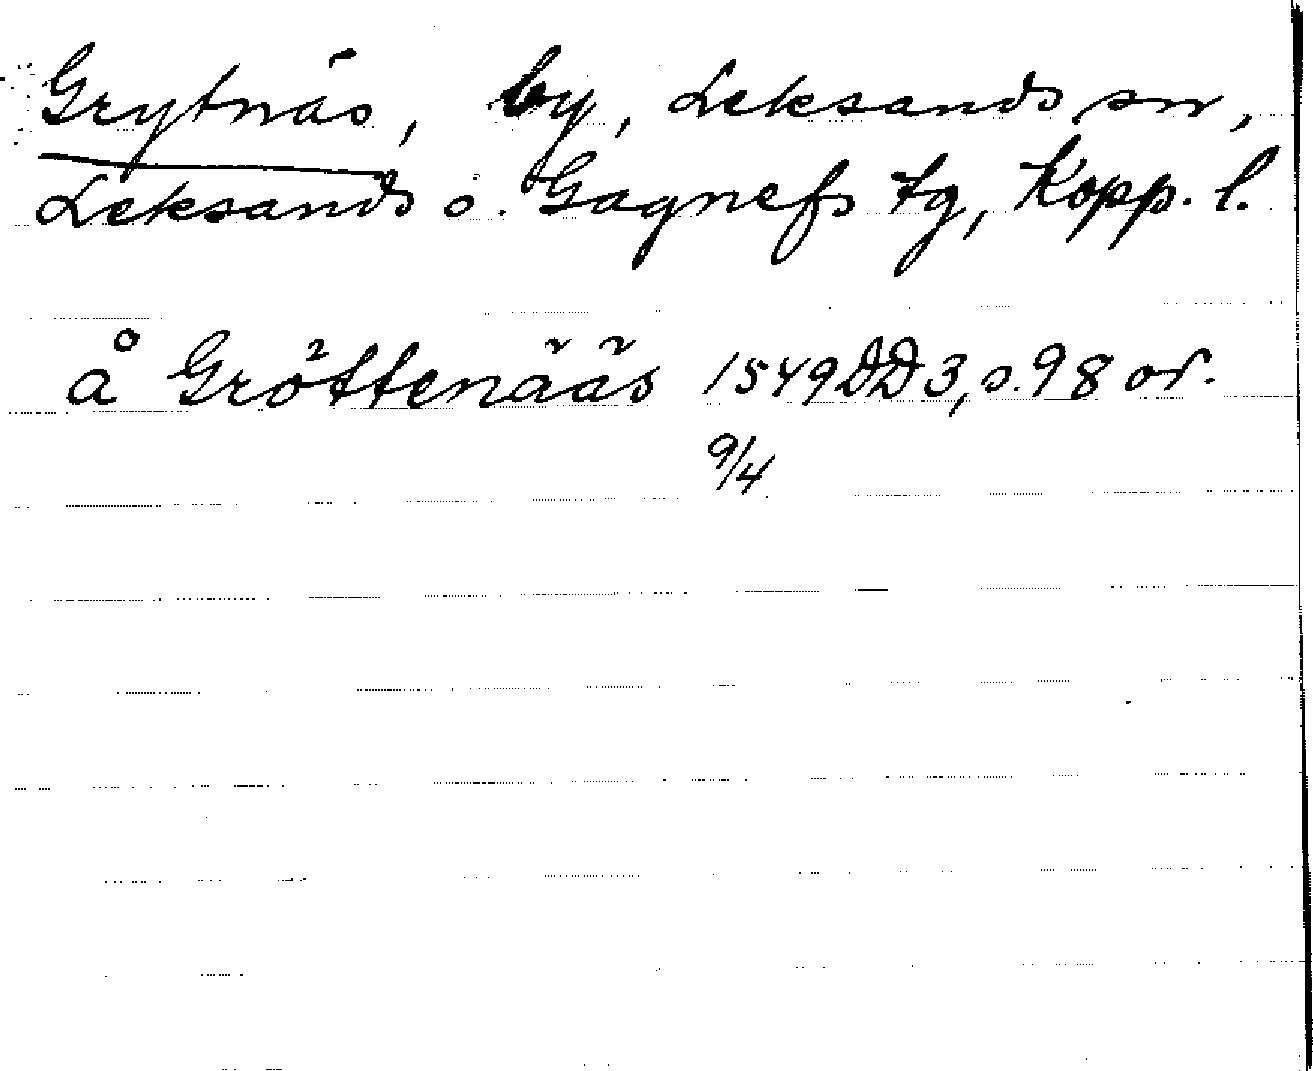 Grytnäs, by, Leksands sn,
Leksands o. Gagnefs tg, Kopp. l.
å Gröttenääs 1549 DD 3, s. 98 or.
9/4